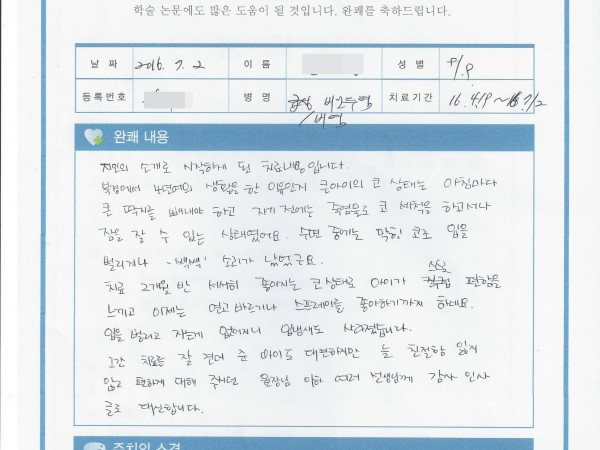 학술 논문에도 많은 도움이 될 것입니다. 완쾌를 축하드립니다.
날 짜 2016. 7. 2 이 름 성 별
등록번호 병 명 급성 비인두염/비염 치료기간 16. 4/9 ~ 16. 7/2
완쾌 내용
지인의 소개로 시작하게 된 치료내용입니다.
북경에서 4년여의 생활을 한 이유인지 큰아이의 코 상태는 아침마다
큰 딱지를 빼내야 하고 자기 전에는 죽염물로 코 세척을 하고서나
잠을 잘 수 있는 상태였어요. 수면 중에는 막힌 코로 입을
벌리거나 "쌕쌕" 소리가 났었구요.
치료 2개월 반 서서히 좋아지는 코 상태로 아이가 스스로 편함을
느끼고 이제는 연고 바르거나 스프레이를 좋아하기까지 하네요.
입을 벌리고 자는게 없어지니 입냄새도 사라졌습니다.
그간 치료를 잘 견뎌 준 아이도 대견하지만 늘 친절함 잃지
않고 편하게 대해 주시던 원장님 이하 여러 선생님께 감사 인사
글로 대신합니다.
주치의 소견